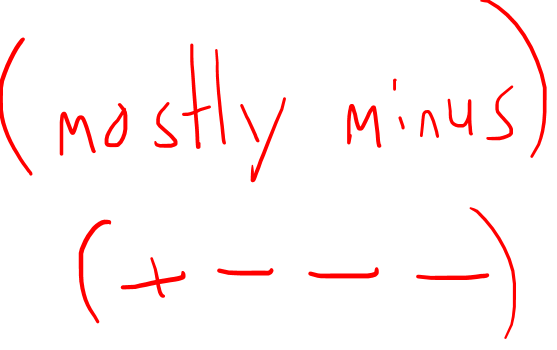 (mostly minus)
(+ − − −)